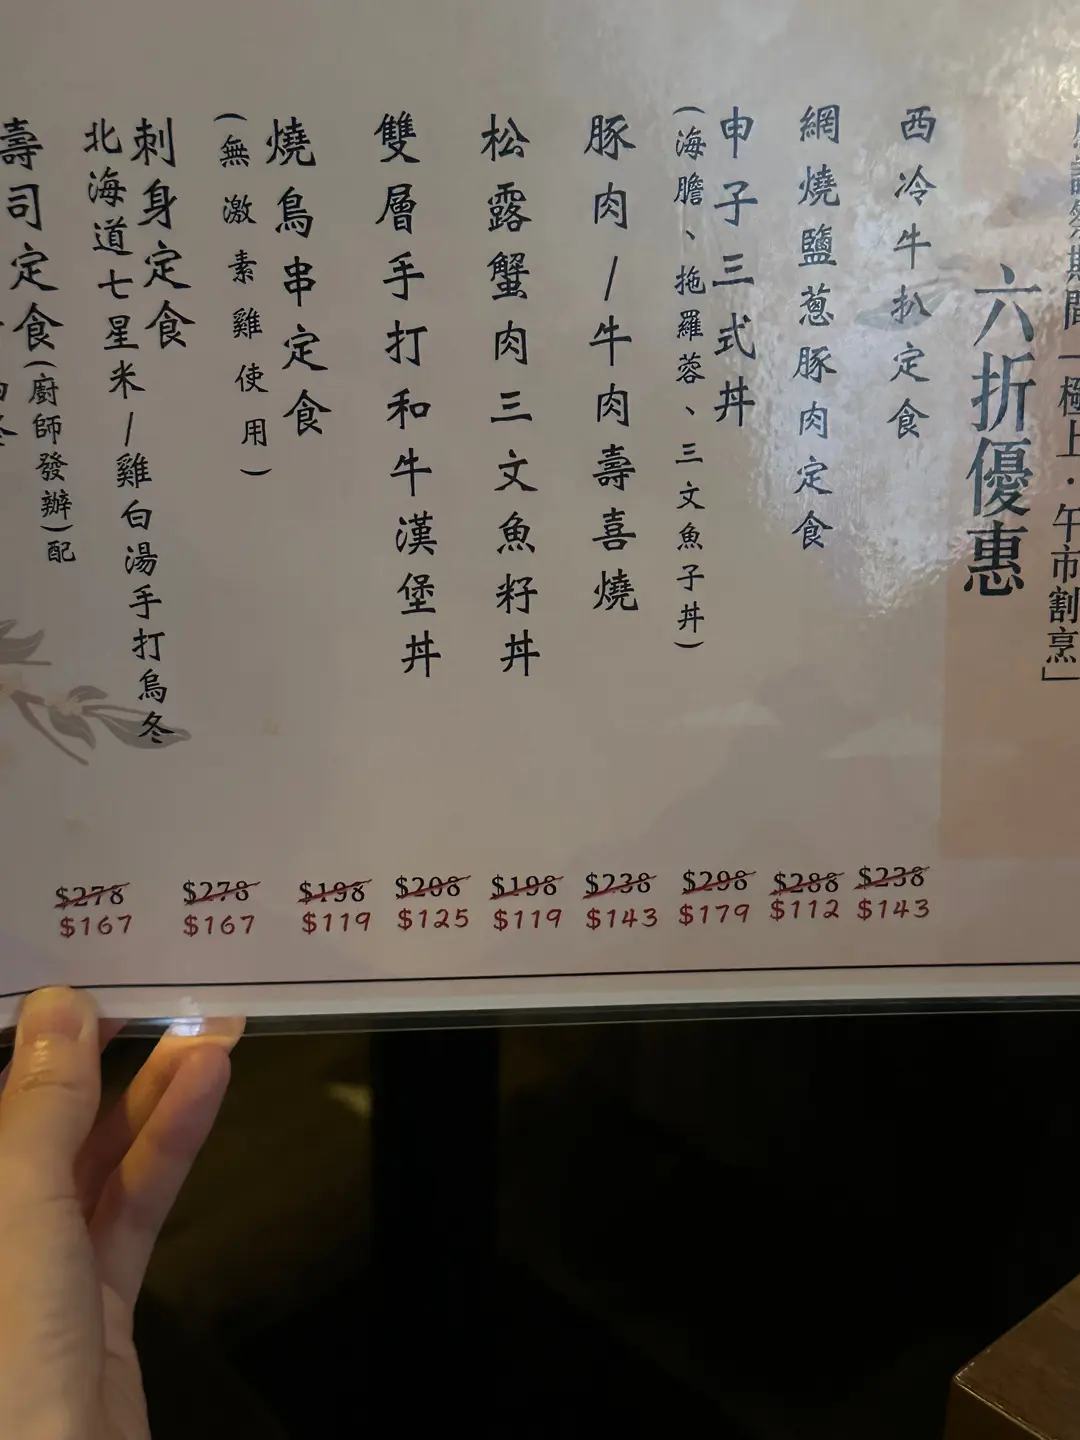 期間「極上·午市割烹」
六折優惠
西冷牛扒定食
$238
$143
網燒鹽蔥豚肉定食
$288
$112
申子三式丼
(海膽、拖羅蓉、三文魚子丼)
$298
$179
豚肉/牛肉壽喜燒
$238
$143
松露蟹肉三文魚籽丼
$198
$119
雙層手打和牛漢堡丼
$208
$125
燒鳥串定食
(無激素雞使用)
$198
$119
刺身定食
北海道七星米/雞白湯手打烏冬
$278
$167
壽司定食(廚師發辦)配
$278
$167